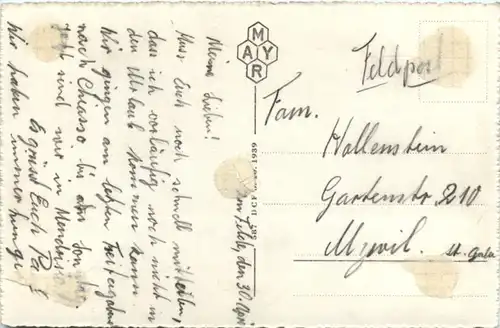 Im Felde, den 30. April
Meine Lieben!
Muss Euch noch schnell mitteilen,
dass ich vorläufig noch nicht in
den Urlaub kommen kann.
Wir gingen am letzten Freitagabend
nach Chiasso bis am
jetzt sind wir in Mendrisio
Es grüsst Euch
Wir haben immer hunger
MAYR
1939
Feldpost
Fam.
Hollenstein
Gartenstr. 210
Uzwil. St. Gallen